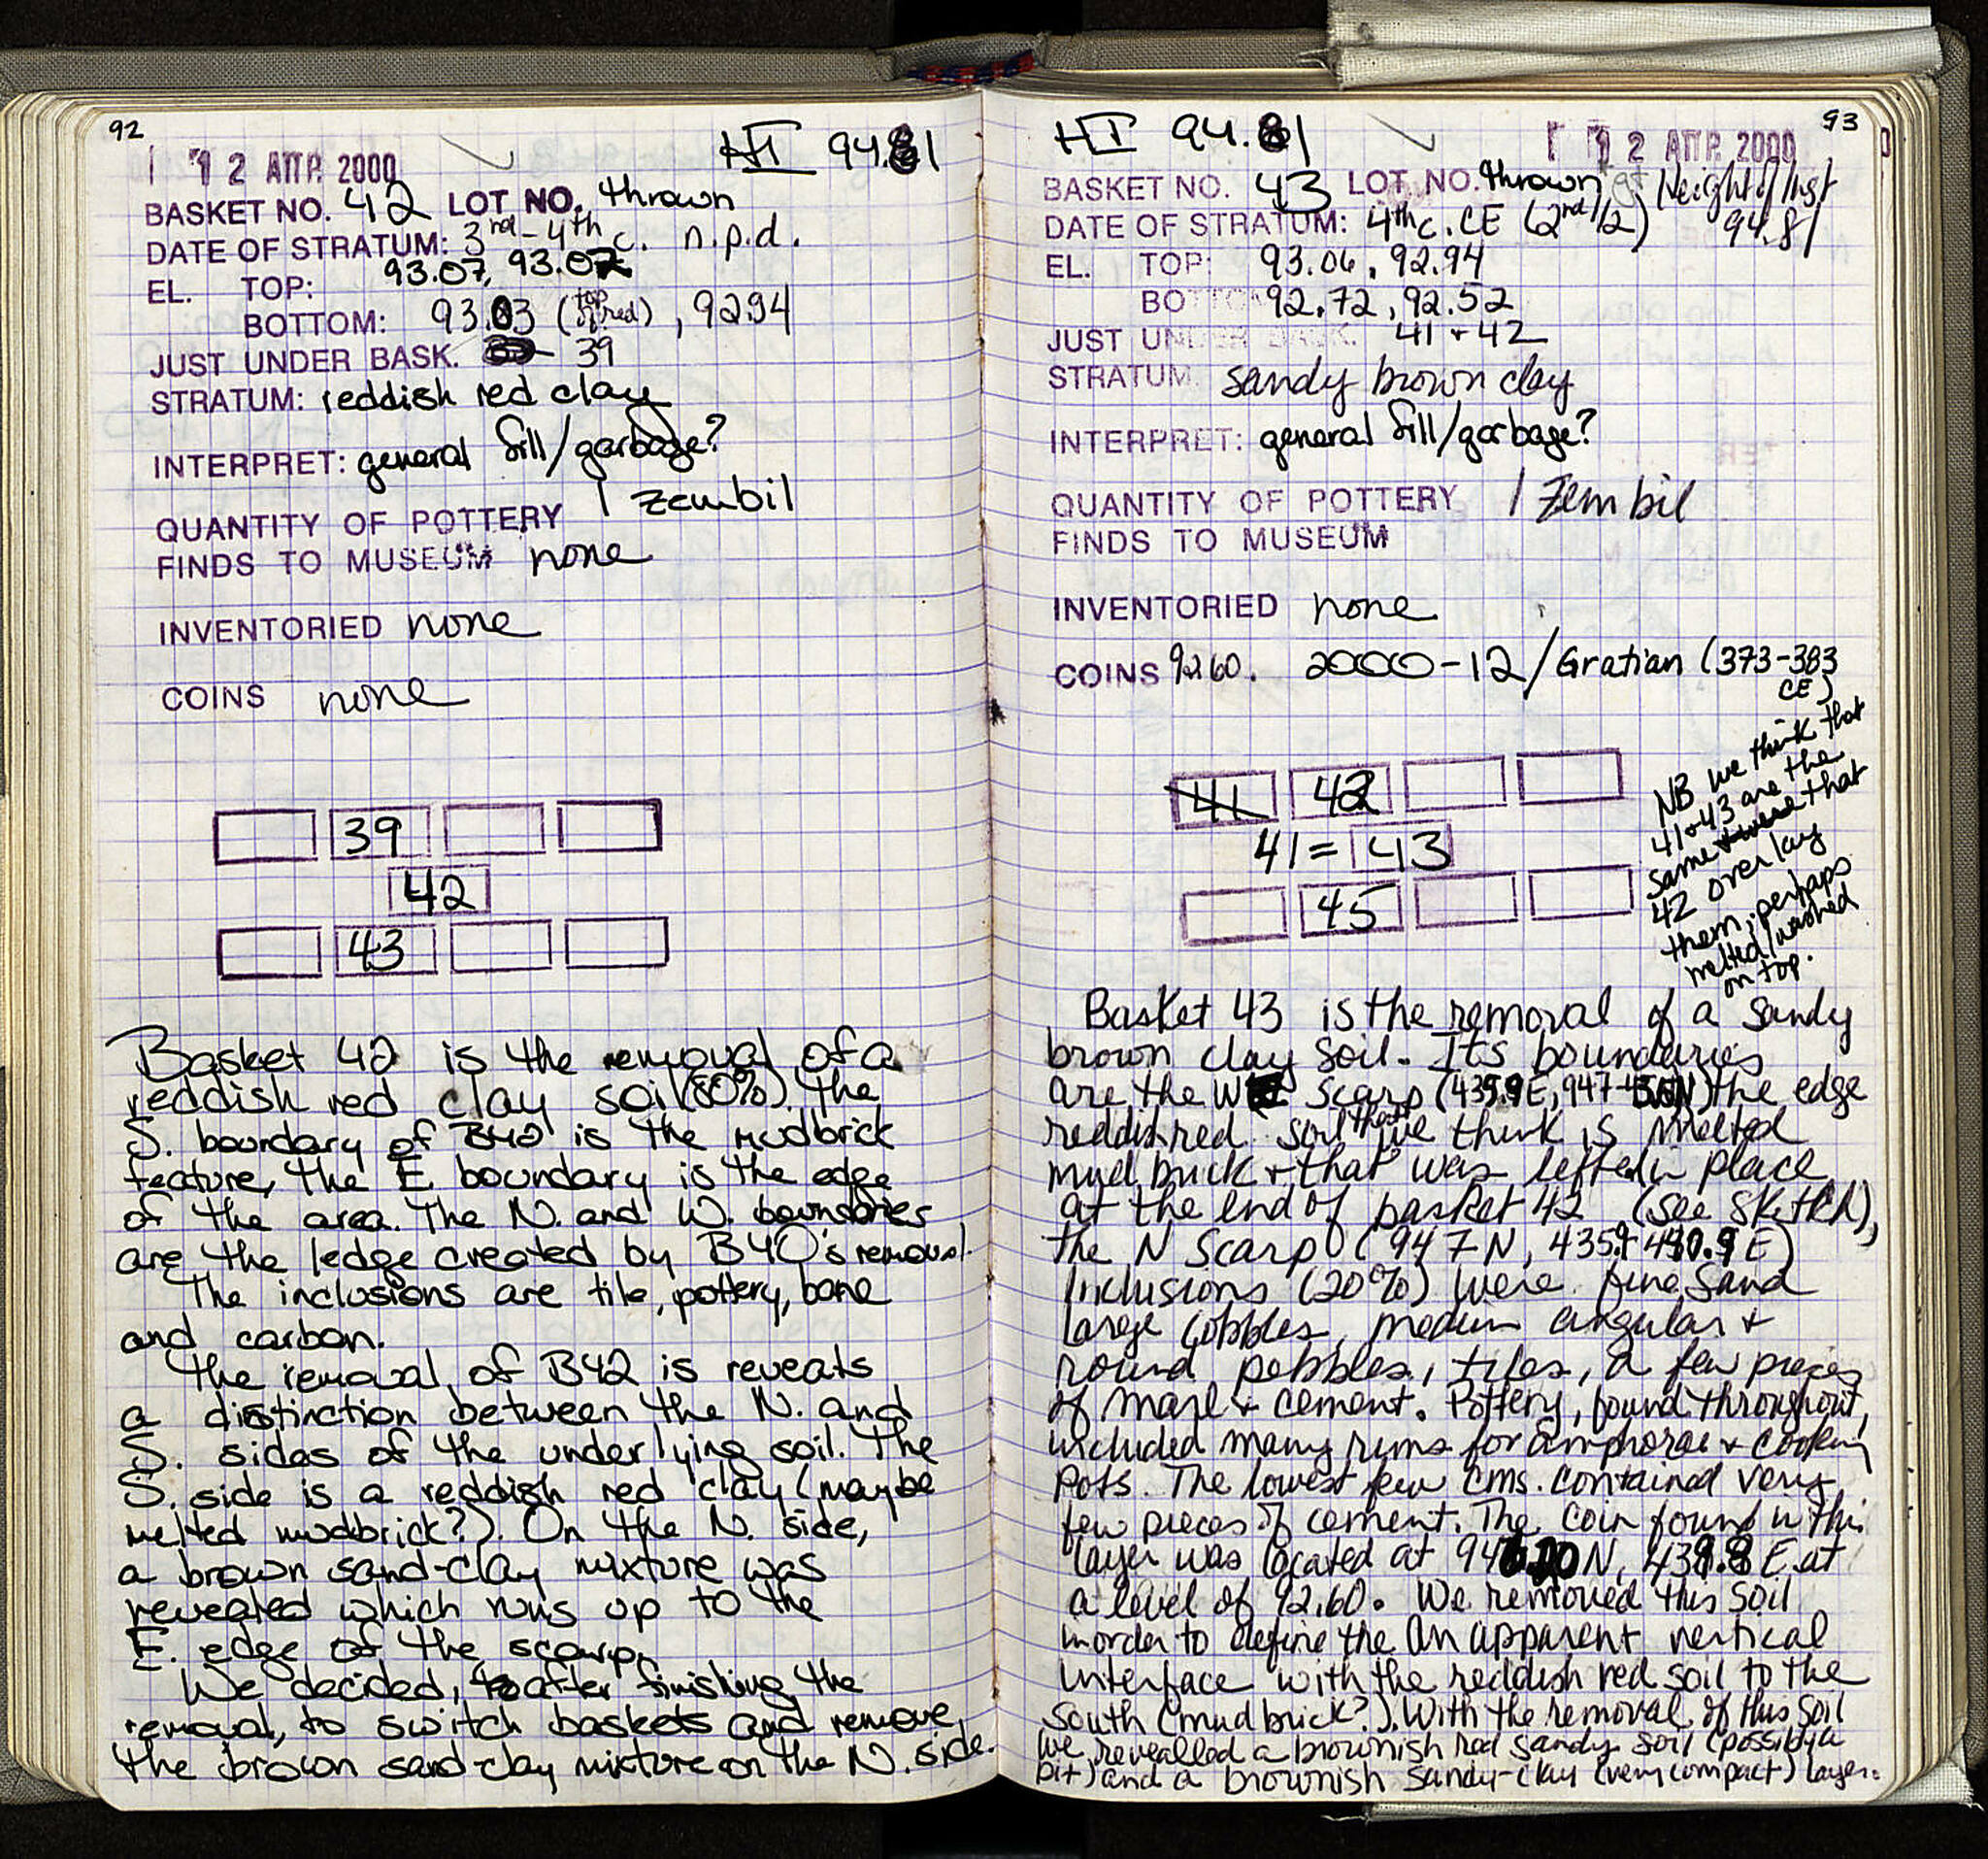 92
12 ΑΠΡ. 2000
HI 94.81
BASKET NO. 42 LOT NO. thrown
DATE OF STRATUM: 3rd-4th c. n.p.d.
EL. TOP: 93.07, 93.07
BOTTOM: 93.03 (top of red), 92.94
JUST UNDER BASK. 39
STRATUM: reddish red clay
INTERPRET: general fill/garbage?
QUANTITY OF POTTERY 1 zembil
FINDS TO MUSEUM none
INVENTORIED none
COINS none
39
42
43
Basket 42 is the removal of a
reddish red clay soil (80%). The
S. boundary of B42 is the mudbrick
feature, the E boundary is the edge
of the area. The N. and W. boundaries
are the ledge created by B40's removal.
The inclusions are tile, pottery, bone
and carbon.
The removal of B42 is reveals
a distinction between the N. and
S. sides of the underlying soil. The
S. side is a reddish red clay (maybe
melted mudbrick?). On the N. side,
a brown sand-clay mixture was
revealed which runs up to the
E. edge of the scarp.
We decided, after finishing the
removal, to switch baskets and remove
the brown sand-clay mixture on the N. side.
93
HI 94.81
12 ΑΠΡ. 2000
BASKET NO. 43 LOT NO. thrown Height of Inst
DATE OF STRATUM: 4th c. CE (2nd 1/2) 94.81
EL. TOP: 93.06, 92.94
BOTTOM 92.72, 92.52
JUST UNDER BASK. 41 + 42
STRATUM sandy brown clay
INTERPRET: general fill/garbage?
QUANTITY OF POTTERY 1 Zembil
FINDS TO MUSEUM
INVENTORIED none
COINS 92.60. 2000-12/Gratian (373-383
CE)
NB we think that
41+43 are the
same + that
42 overlay
them, perhaps
melted/washed
on top.
41 42
41 = 43
45
Basket 43 is the removal of a sandy
brown clay soil. Its boundaries
are the W scarp (435.9E, 947- N) the edge
reddish red soil that we think is melted
mud brick + that was left in place
at the end of basket 42 (see sketch),
the N Scarp (947N, 435.9-440.9E)
Inclusions (20%) were fine sand
large cobbles, medium angular +
round pebbles, tiles, a few pieces
of marl + cement. Pottery, found throughout,
included many rims for amphorae + cooking
pots. The lowest few cms. contained very
few pieces of cement. The coin found in this
layer was located at N, 439.8 E at
a level of 92.60. We removed this soil
in order to define the an apparent vertical
interface with the reddish red soil to the
south (mud brick?). With the removal of this soil
we revealled a brownish red sandy soil (possibly a
pit) and a brownish sandy-clay (very compact) layer.